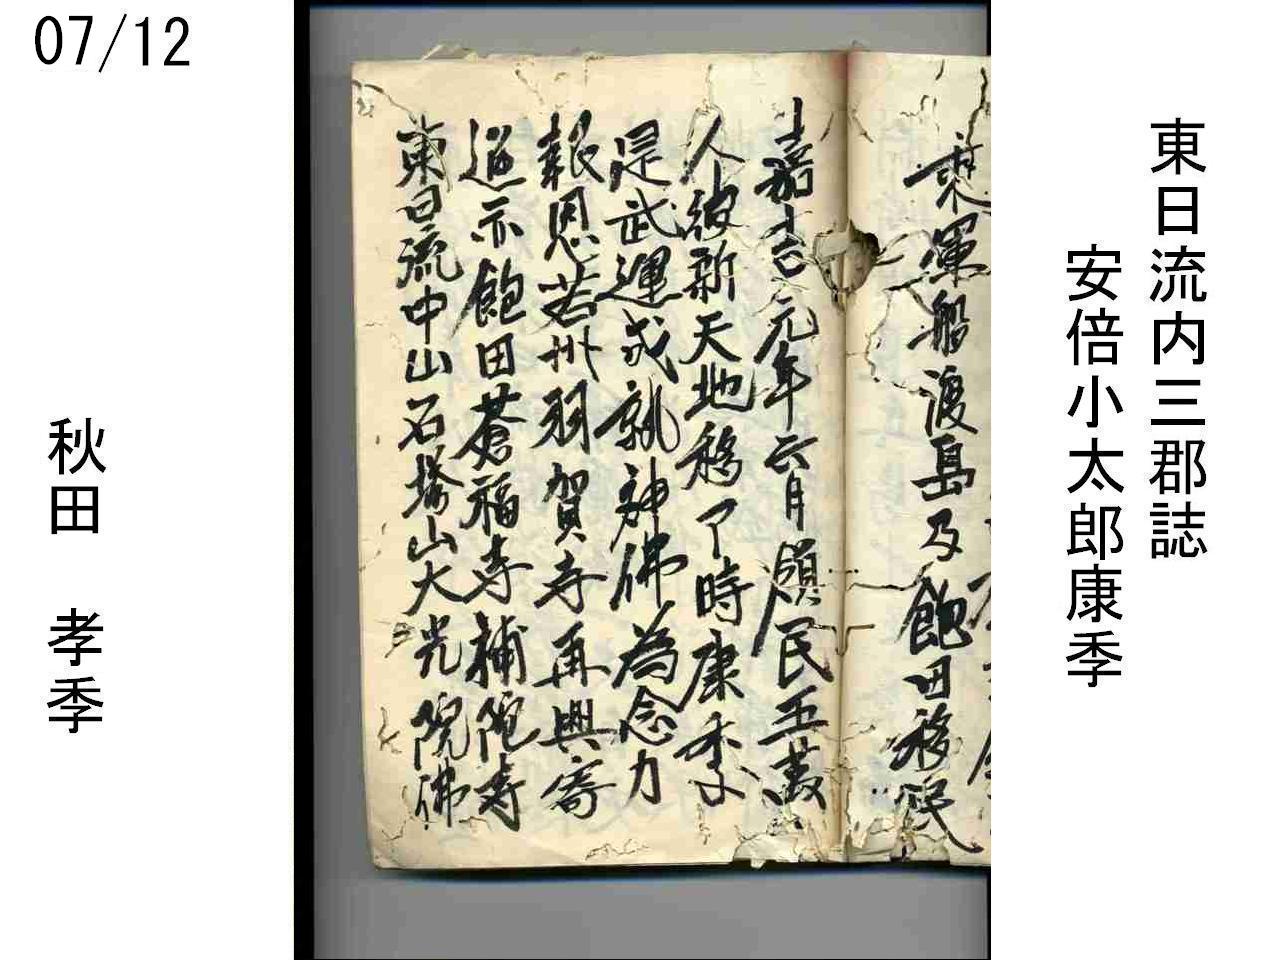 07/12
東日流内三郡誌
安倍小太郎康季
乗軍船渡島及飽田移民
嘉吉元年六月領民五萬
人彼新天地移了時康季
是武運成就神佛為念力
報恩若州羽賀寺再興寄
進亦飽田蒼福寺補陀寺
東日流中山石塔山大光院佛
秋田 孝季